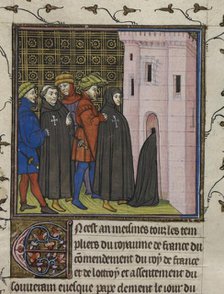 En cest an meismes touz les tem
pliers du royaume de france du
commendement du roy de france
et de lottroy et assentement du
souverain euesque pape clement le iour du